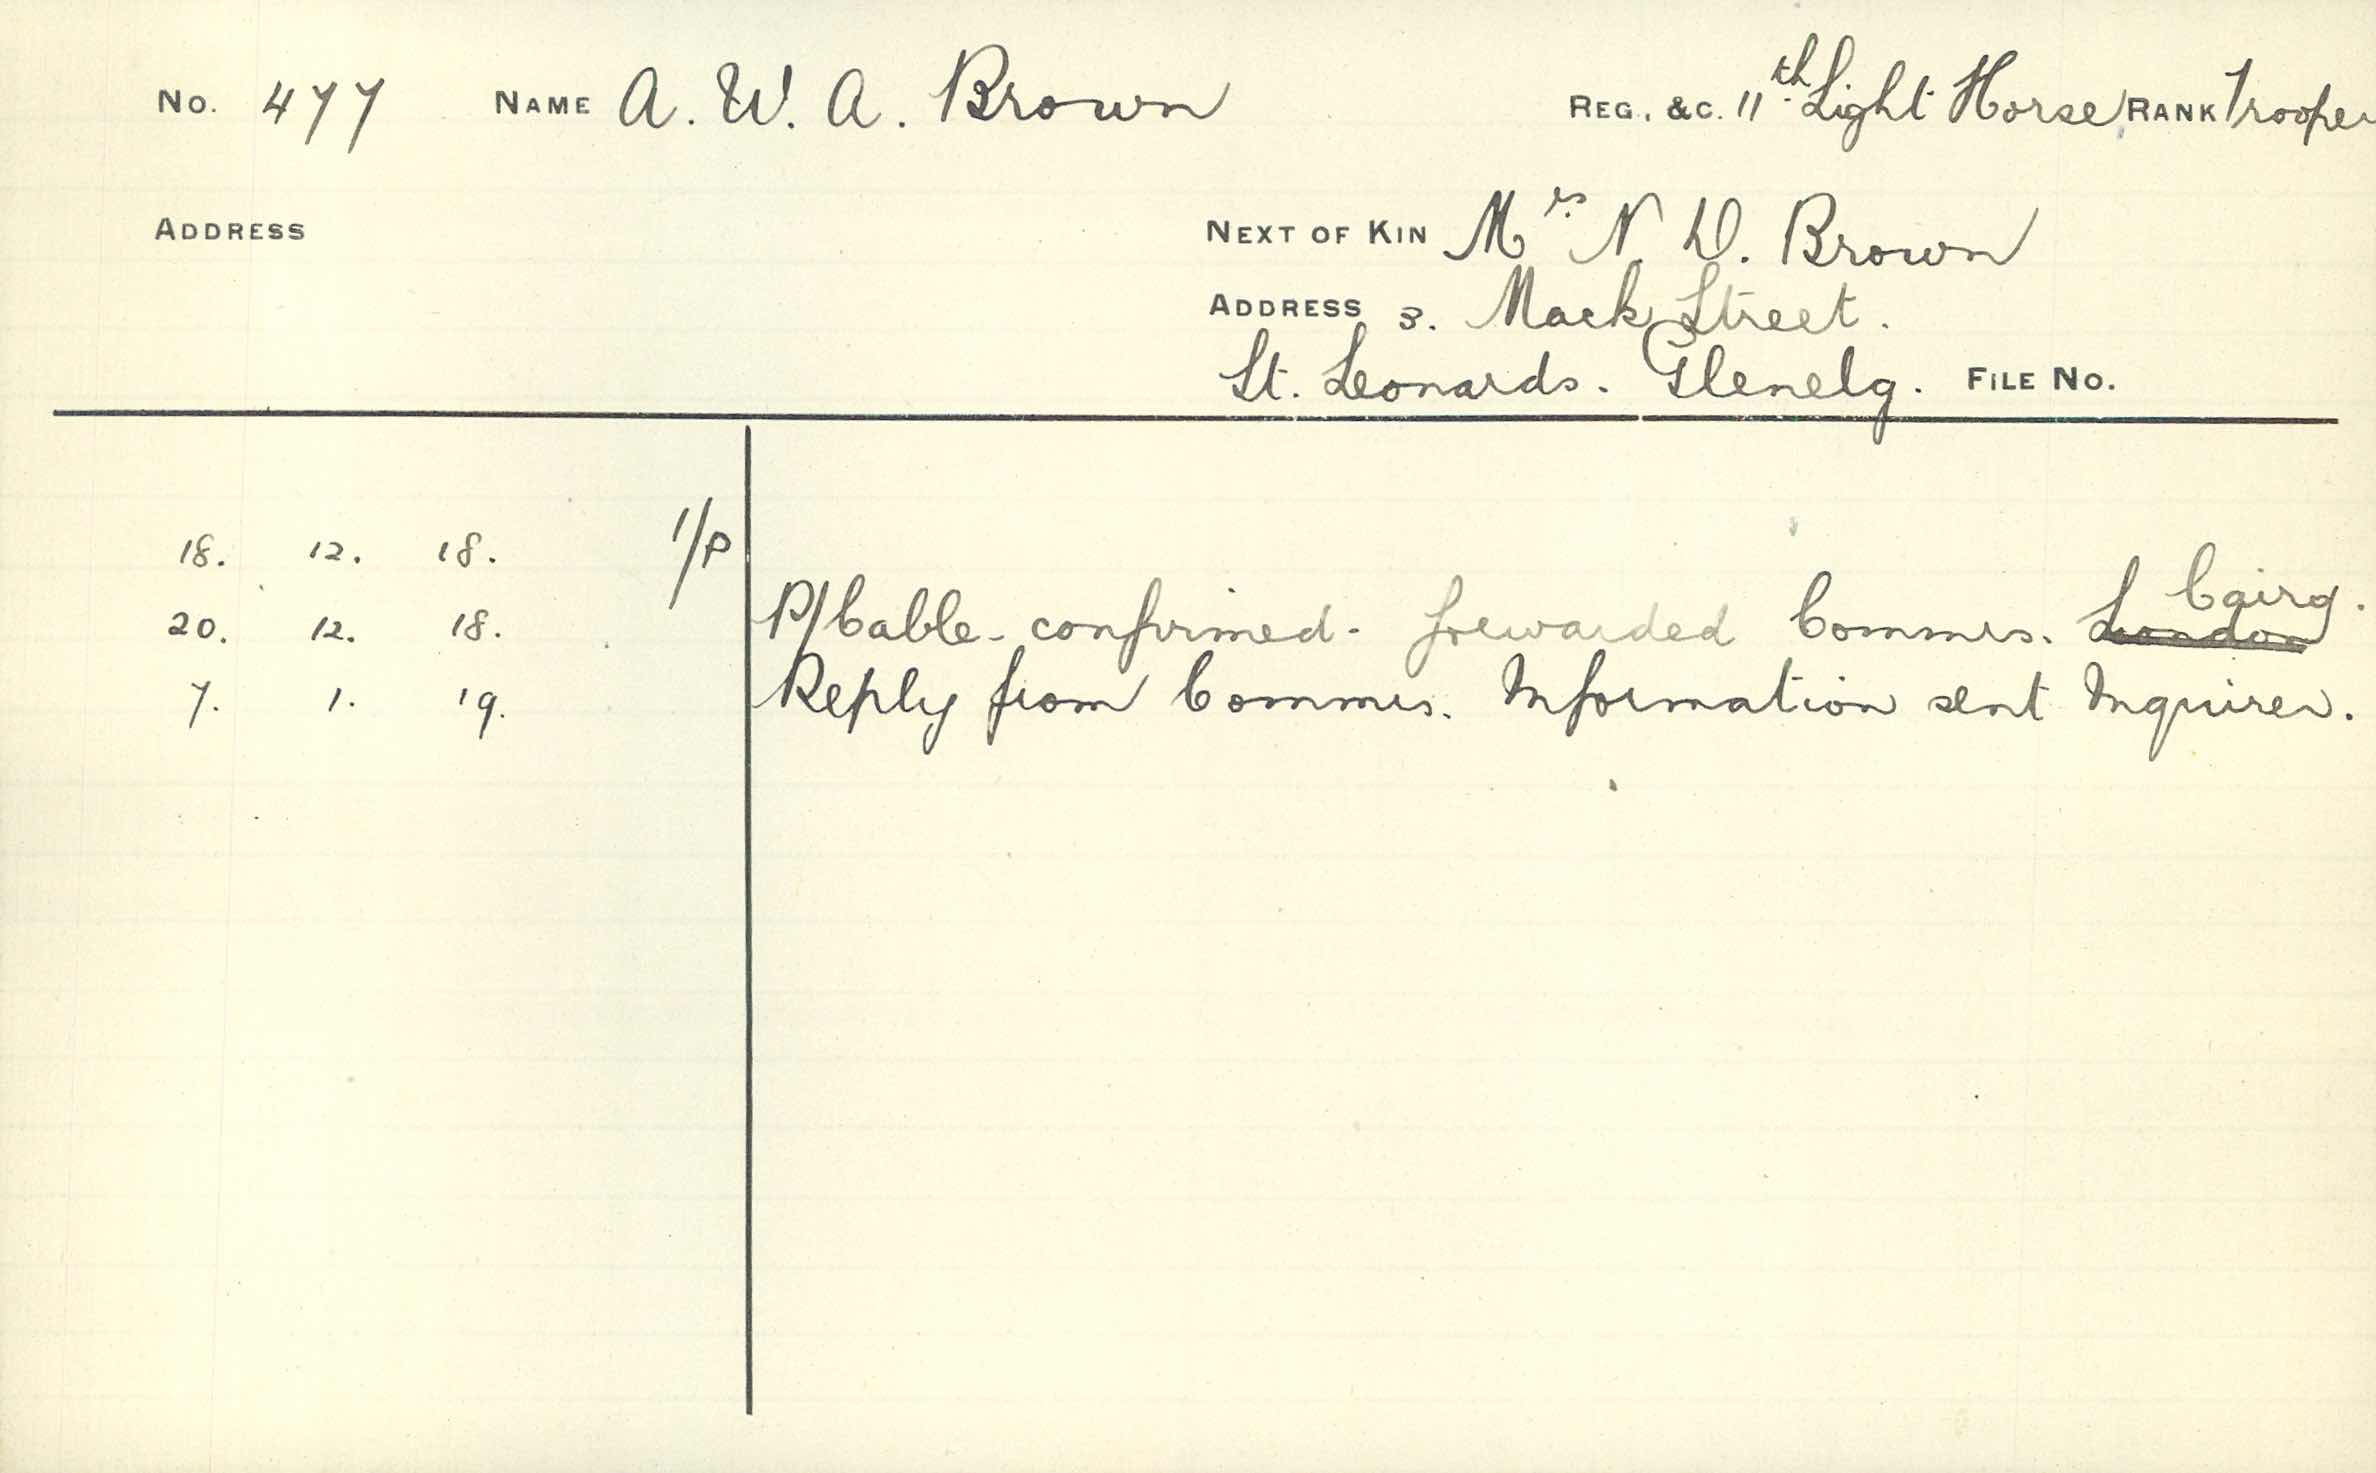 No. 477 NAME A. W. A. Brown REG. &C. 11th Light Horse RANK Trooper
ADDRESS NEXT OF KIN Mrs N. D. Brown
ADDRESS 3. Mack Street.
St. Leonards. Glenelg. FILE No.
18. 12. 18. 1/P
20. 12. 18. P/Cable - confirmed - forewarded Commrs. London Cairo.
7. 1. 19. Reply from Commrs. Information sent Inquirer.